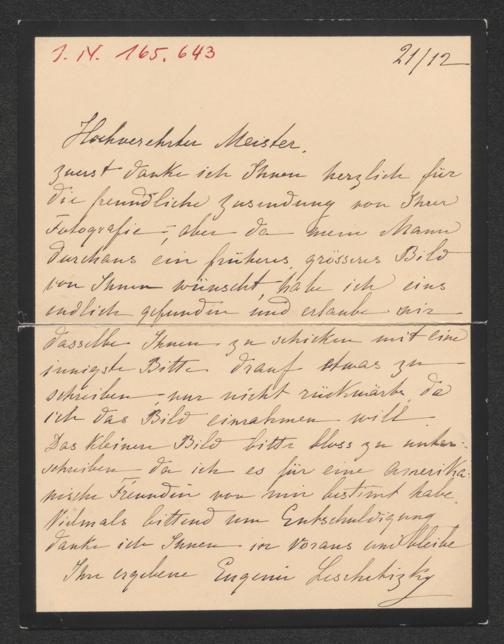 I. N. 165.643
21/12
Hochverehrter Meister.
zuerst danke ich Ihnen herzlich für
die freundliche Zusendung von Ihrer
Fotografie -, aber da mein Mann
durchaus ein früheres, grösseres Bild
von Ihnen wünscht, habe ich eins
endlich gefunden und erlaube mir
dasselbe Ihnen zu schicken mit eine
innigste Bitte drauf etwas zu
schreiben -, nur nicht rückwärts, da
ich das Bild einrahmen will.
Das kleinere Bild bitte bloss zu unter-
schreiben - da ich es für eine amerika-
nische Freundin von mir bestimt habe.
Vielmals bittend um Entschuldigung
danke ich Ihnen in Voraus und bleibe
Ihre ergebene Eugenie Leschetizky